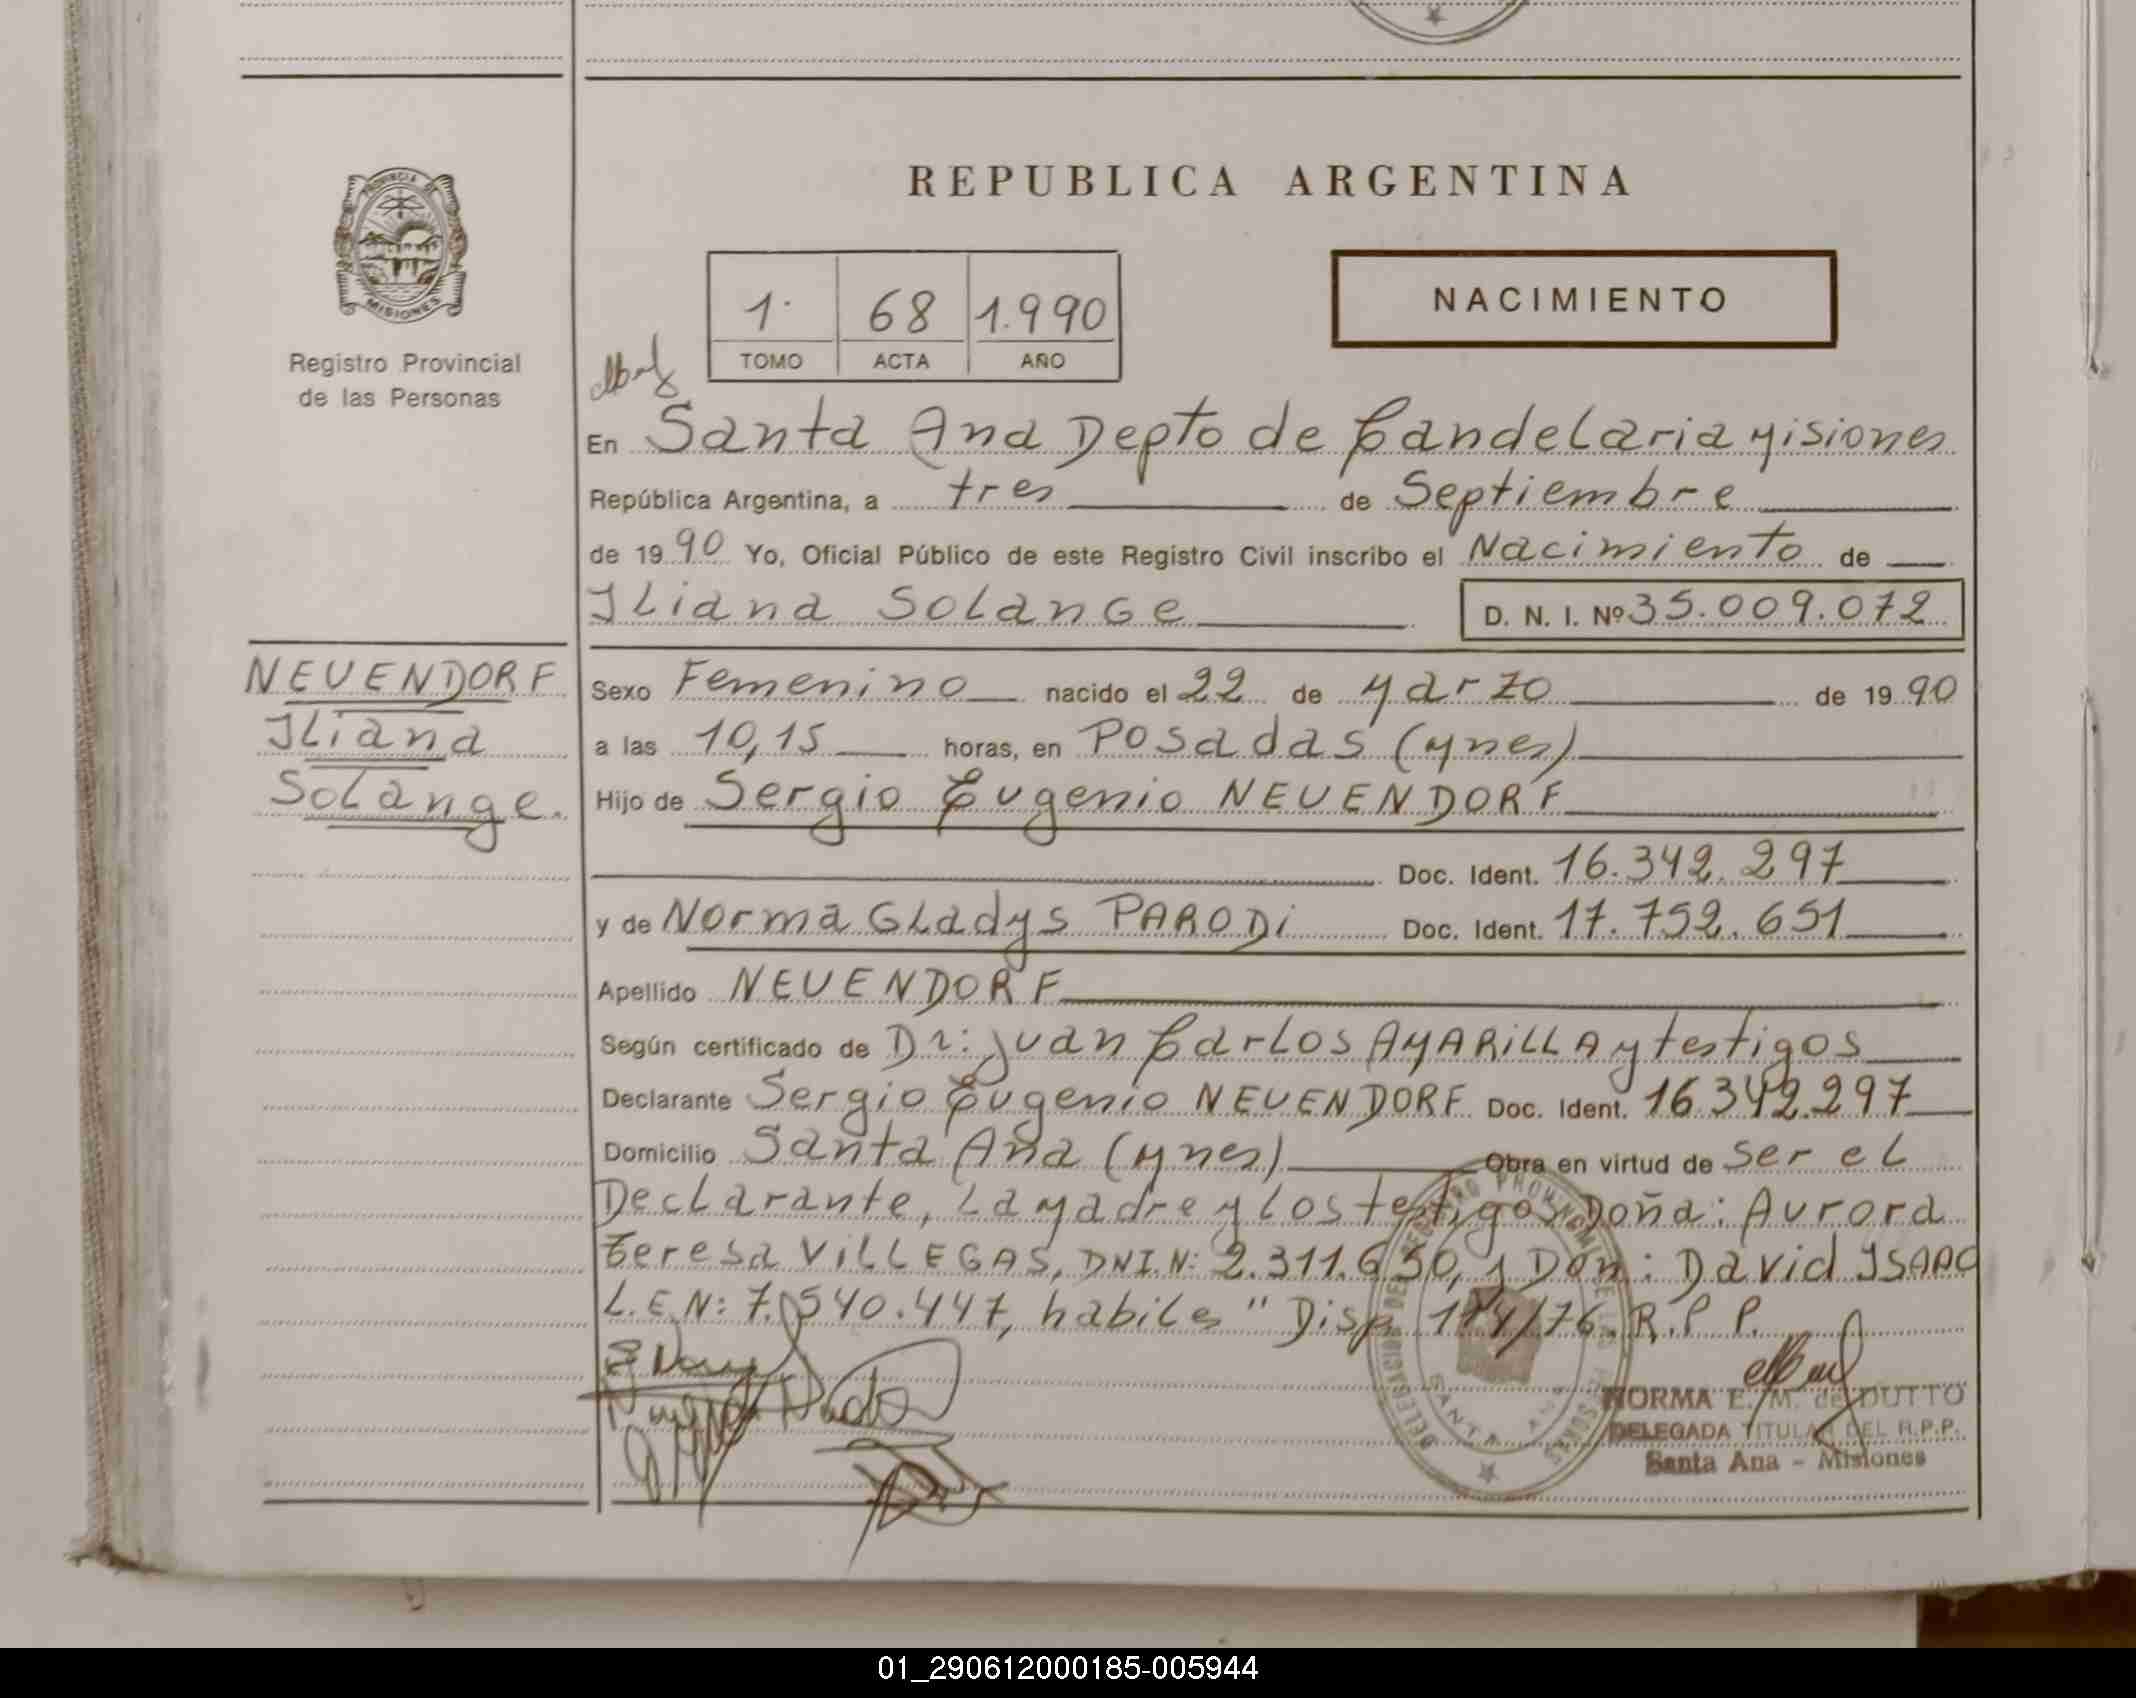 REPUBLICA ARGENTINA
PROVINCIA DE
MISIONES
Registro Provincial
de las Personas
1. 68 1.990
TOMO ACTA AÑO
NACIMIENTO
En Santa Ana Depto de Candelaria Misiones
República Argentina, a tres de Septiembre
de 1990 Yo, Oficial Público de este Registro Civil inscribo el Nacimiento de
Iliana Solange D. N. I. Nº 35.009.072
NEUENDORF
Iliana
Solange.
Sexo Femenino nacido el 22 de Marzo de 1990
a las 10,15 horas, en Posadas (Mnes)
Hijo de Sergio Eugenio NEUENDORF
Doc. Ident. 16.342.297
y de Norma Gladys PARODi Doc. Ident. 17.752.651
Apellido NEUENDORF
Según certificado de Dr: Juan Carlos AMARiLLA y testigos
Declarante Sergio Eugenio NEUENDORF Doc. Ident. 16.342.297
Domicilio Santa Ana (Mnes) Obra en virtud de ser el
Declarante, La Madre y Los testigos Doña: Aurora
Teresa ViLLEGAS, DNI.N: 2.311.630, y Don: David ISAAC
L.E.N: 7.540.447, habiles " Disp. 174/76. R.P.P.
NORMA E. M. de DUTTO
DELEGADA TITULAR DEL R.P.P.
Santa Ana - Misiones
01_290612000185-005944